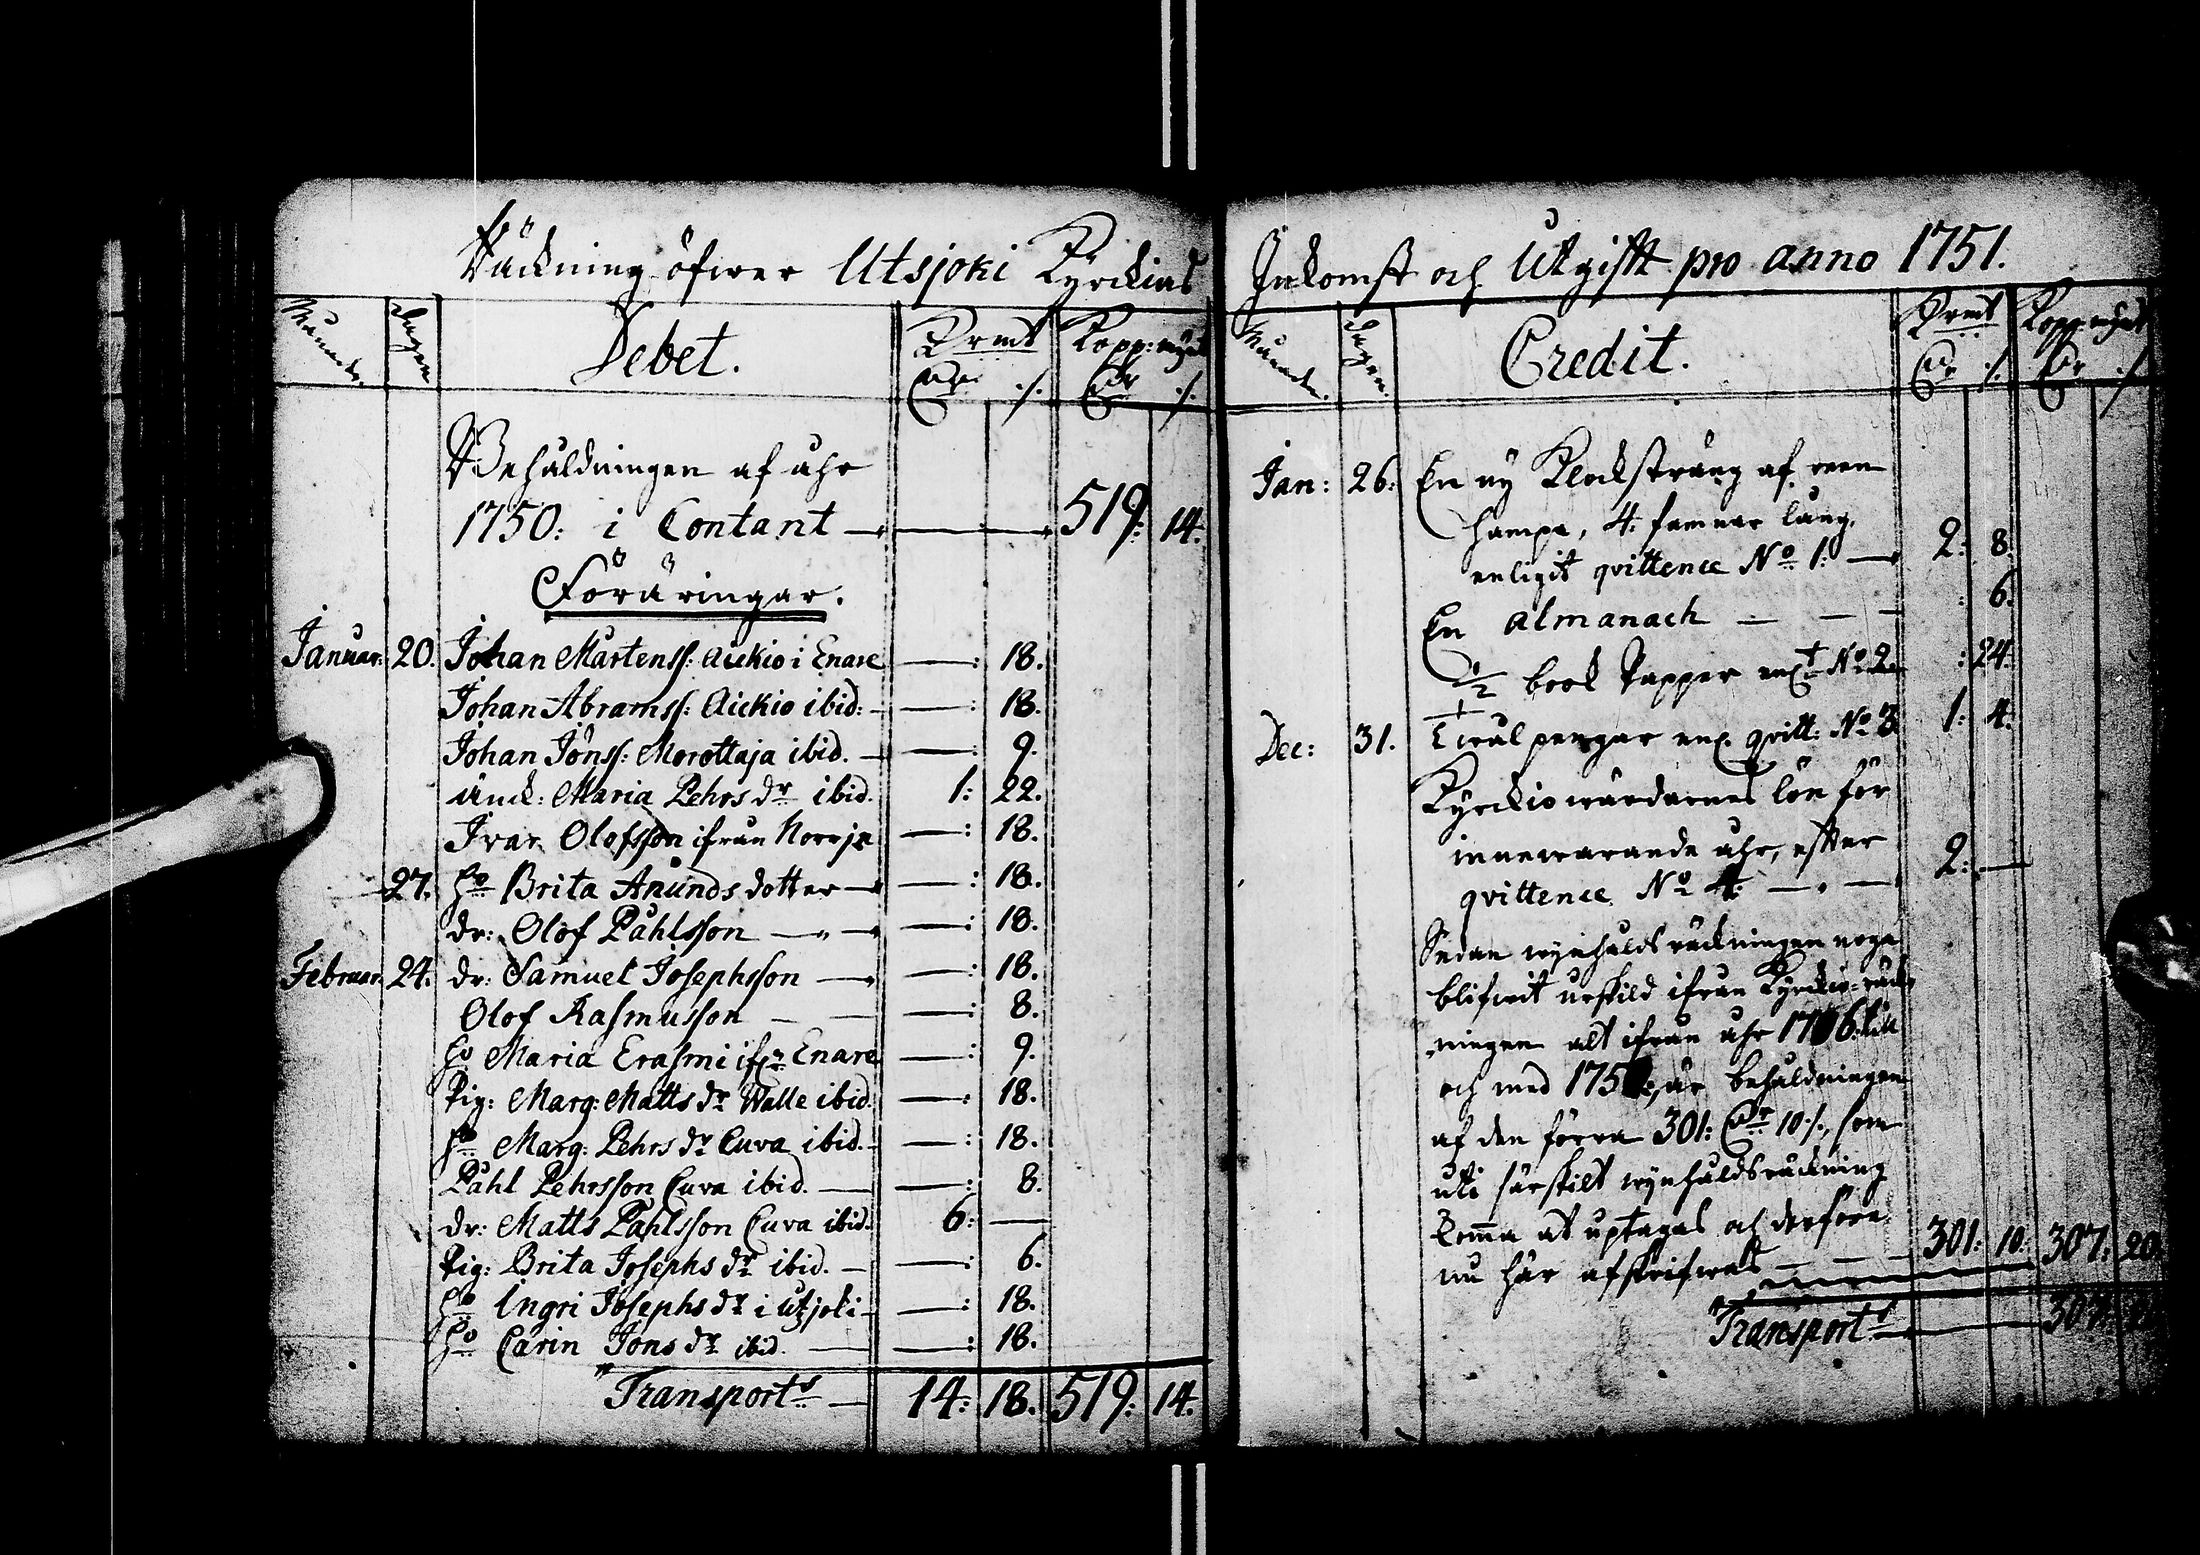 Räckning öfwer Utsjoki Kyrckias
Månader. Dagen Debet. Kopp: mynt
Behåldningen af åhr
1750: i Contant — 519: 14.
Föräringar.
Januar: 20. Johan Mårtenss: Aickio i Enare — : 18.
Johan Abramss: Aickio ibid: — : 18.
Johan Jönss: Morottaja ibid. — : 9.
Änck: Maria Pehrs dr ibid. 1: 22.
Ivar Olofsson ifrån Norrje — : 18.
27. ho Brita Anunds dotter — : 18.
dr: Olof Påhlsson — : 18.
Februar: 24. dr: Samuel Josephsson — : 18.
Olof Rasmusson — : 8.
ho Maria Erasmi ifr. Enare — : 9.
Pig: Marg: Matts dr Walle ibid. — : 18.
ho Marg: Pehrs dr Cuva ibid. — : 18.
Påhl Pehrsson Cuva ibid. — : 8.
dr: Matts Påhlsson Cuva ibid. 6: —
Pig: Brita Josephs dr ibid. — : 6.
ho Ingri Josephs dr i Utzjoki — : 18.
ho Carin Jons dr ibid. — : 18.
Transports — 14: 18. 519: 14.
Inkomst och Utgifft pro anno 1751.
Månader. Dagen. Credit. Kopp: mynt
Jan: 26. En ny Klockstrång af reen
hampa, 4: famnar lång,
enligit qvittence No 1: — 2: 8.
En Almanach — — — : 6.
1/2 book Papper No 2. : 24.
Dec: 31. penar enl. qvitt: No 3 1: 4.
Kyrckiowärdarnes lön för
innewarande åhr, efter
qvittence No 4: — 2: —
Sedan wynhålds räckningen noga
blifwit urskild ifrån Kyrckio-räck-
ningen alt ifrån åhr 1706. till
och med 1750, är behåldningen
af den förra 301: Dr 10 /., som
uti särskilt wynhåldsräckning
komma at uptagas och derföre
nu här afskrifwas — — 301: 10. 307: 20.
Transports — 307: 20